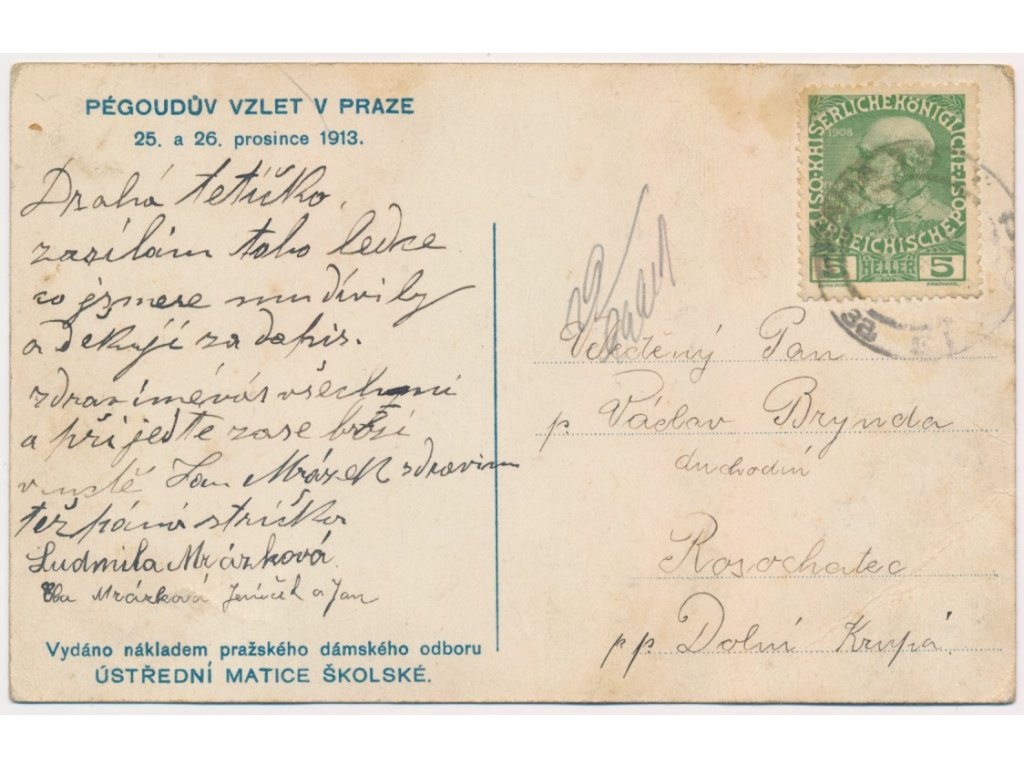 PÉGOUDŮV VZLET V PRAZE
25. a 26. prosince 1913.
Drahá tetičko,
zasílám toho ledce
co jsmese mu divily
a děkuji za dopis.
zdravímévás všechni
a přijedte zase brzi
Jan Mrázek zdravim
též pána strička
Ludmila Mrázková
Mrázková Jeníček a Jan
Vydáno nákladem pražského dámského odboru
ÚSTŘEDNÍ MATICE ŠKOLSKÉ.
KAISERLICHEKÖNIGLICHE
ÖSTERREICHISCHEPOST
1908
5 HELLER 5
Velectěný Pan
p Václav Brynda
duchodní
Rosochatec
pp. Dolní Krupá.